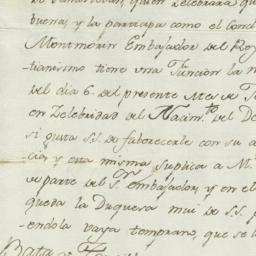 quien zelebrara qu
buena; y la participa como el Cond
Montmorin Embajador del Rey
tianisimo tiene una Funcion la n
del dia 6. del presente Mes de
en Zelebridad del Nacim.to del De
si gusta S.S. de faborecerle con su a
cion y esta misma suplica a M.
de parte del S.r embajador, y en el
queda la Duquesa mui de S.S. p
endola vaya temprano, que se l